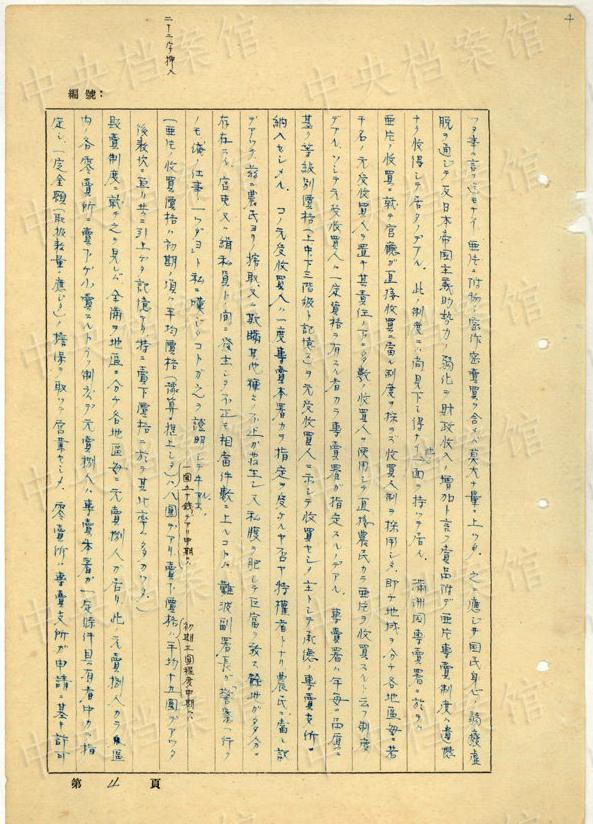 中央档案馆
4
二十二字挿入
編號：
フ事ハ言フ迄モナイ 亜片ニ附物ノ密作密賣買ヲ含メバ莫大ナ量ニ上ツタ。之ニ應ジテ国民身心ノ弱癈虚
脱ヲ通ジテ反日本帝国主義的勢力ノ弱化ト財政收入ノ増加ト言フ賞品附デ亜片專賣制度ハ遺憾
ナク收得シテ居タノデアル。此ノ制度ニハ尚見下シ得ナイ一面ヲ持ツテ居ル。満洲国專賣署ニ於テハ
亜片ノ收買ニ就テ官廳ガ直接收買ニ當ル制度ヲ採ラズ收買人制ヲ採用シタ。即チ地域ヲ分チ各地區毎ニ若
干名ノ元受收買人ヲ置キ其責任ノ下ニ多数ノ收買人ヲ使用シテ直接農民カラ亜片ヲ收買スルト云フ制度
デアル。ソシテ元受收買人ハ一定資格ヲ有スル者カラ專賣署ガ指定スルノデアル。專賣署ハ年毎ニ品質ニ
基ク等級別價格(上中下三階級ト記憶ス)ヲ元受收買人ニ示シテ收買セシメ主トシテ承德ノ專賣支所ヘ
納入セシメル。コノ元受收買人ハ一度專賣本署カラ指定ヲ受ケルヤ否ヤ特權者トナリ農民ニ當ル訳
デアツテ、茲ニ農民ヨリ搾取又ハ欺瞞其他種々ノ不正ガ発生シテ私腹ヲ肥シテ巨富ヲ致ス余地ガ多分ニ
存在スル。官吏又ハ請私員トノ間ニ發生シタ不正モ相當件数ニ上ルコトハ難波副署長ガ「警察ノ行ク
ノモ俺ノ仕事ノ一ツダヨ」ト私ニ嘆ジタコトガ之ヲ證明シテ余リアル。
(亜片ノ收買價格ハ初期ノ頃ハ平均價格(予算ニ推上シタ)ハ八圓デアリ、賣下價格ハ平均十九圓デアツタ
一圓五十錢デアリ中期ハ
初期二圓程度中期ハ
後数次ニ亘リ共ニ引上ゲタ記憶アリ特ニ賣下價格ニ於テ其比率ハ多カツタ。)
販賣制度ニ就テ之ヲ見レバ全満ヲ地區ニ分チ各地區毎ニ元賣捌人ガ居リ此ノ元賣捌人カラ區
内ノ各零賣所ニ賣下ゲ小賣スルト云フ制デ元賣捌人ハ專賣本署ガ一定條件具有者中カラ指
定シ一定金額(取扱数量ニ應ジタ)ノ擔保ヲ取ツテ營業セシメ、零賣所ハ專賣支所ガ申請ニ基キ許可
第 4 頁